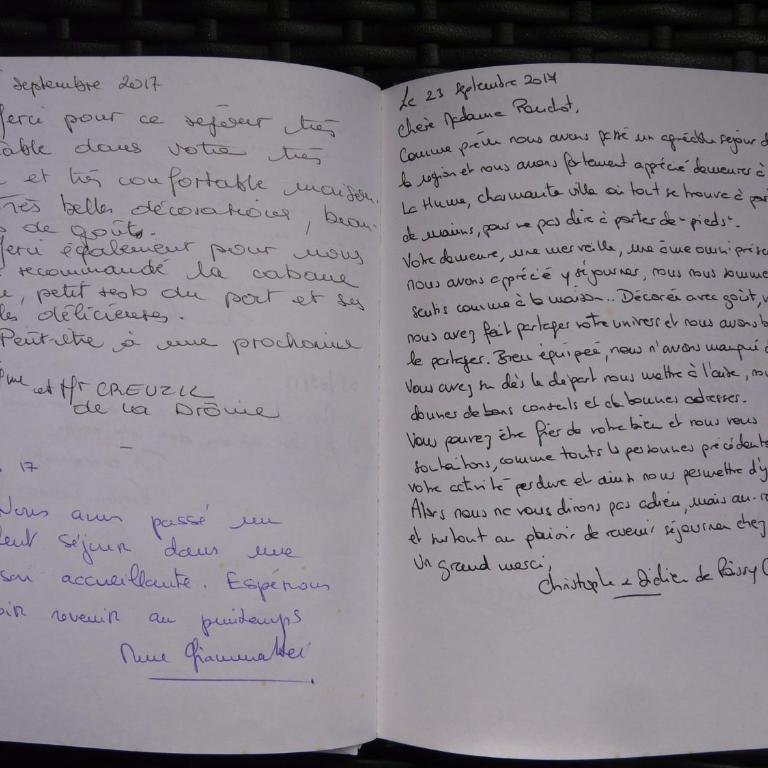 septembre 2017
Merci pour ce séjour très
dans votre très
et très confortable maison.
Très belles décorations, beau-
de goûts.
Merci également pour nous
recommandé la cabane
, petit resto du port et ses
délicieuses.
Peut-être à une prochaine
Mme et Mr CREUZIL
de la Drôme
17
Nous avons passé un
séjour dans une
accueillante. Espérons
revenir au printemps
Mme
Le 23 septembre 2017
Chère Madame
Comme prévu nous avons passé un agréable séjour d
la région et nous avons fortement apprécié demeurer à
La Hume, charmante ville où tout se trouve à por
de mains, pour ne pas dire à portes de "pieds".
Votre demeure, une merveille, une âme omni prése
nous avons apprécié y séjourner, nous nous sommes
sentis comme à la maison.. Décorée avec goût, v
nous avez fait partager votre univers et nous avons
le partager. Bien équipée, nous n'avons manqué d
Vous avez su dès le départ nous mettre à l'aise, nou
donner de bons conseils et de bonnes adresses.
Vous pouvez être fier de votre bien et nous vous
souhaitons, comme touts les personnes précédente
votre activité perdure et ainsi nous permettre d'y
Alors nous ne vous dirons pas adieu, mais au-r
et surtout au plaisir de revenir séjourner chez
Un grand merci,
Christophe et Didier de Poissy